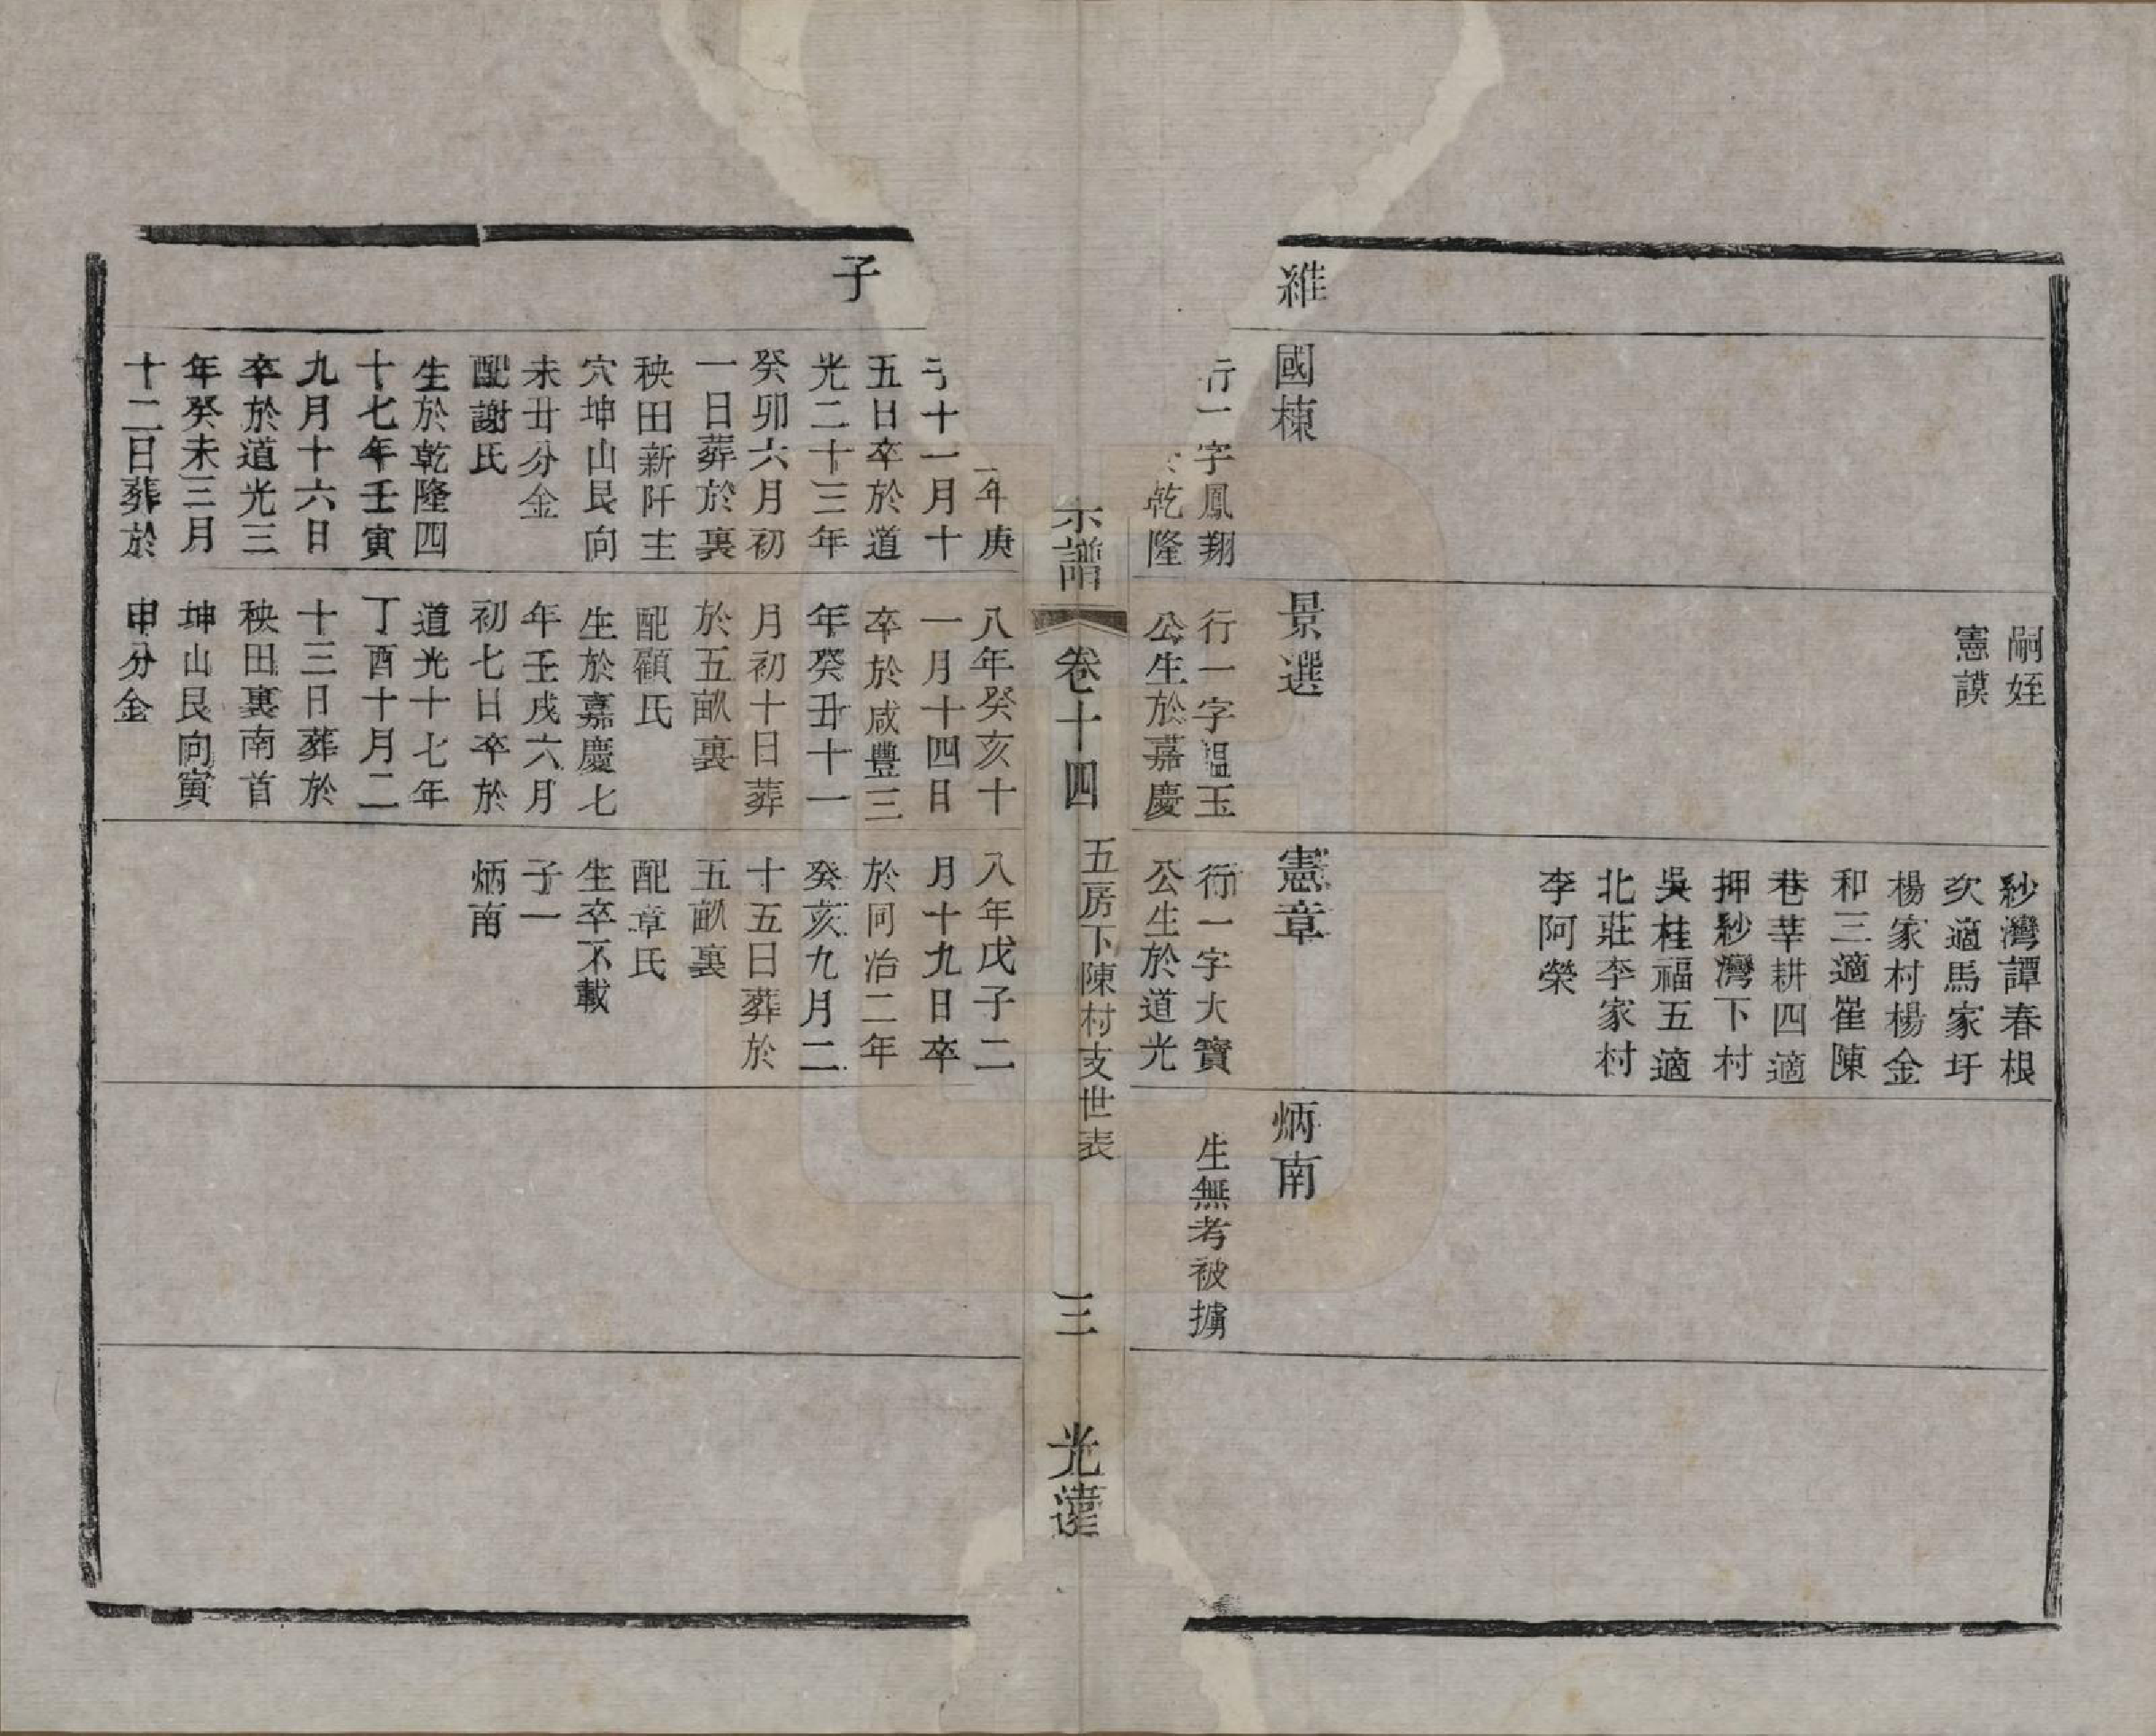 維
子
國棟
行一字鳳翔
乾隆
年庚
十一月十
五日卒於道
光二十三年
癸卯六月初
一日葬於裏
秧田新阡主
穴坤山艮向
未廿分金
配謝氏
生於乾隆四
十七年壬寅
九月十六日
卒於道光三
年癸未三月
十二日葬於
嗣姪
憲謨
景選
行一字韞玉
公生於嘉慶
八年癸亥十
一月十四日
卒於咸豐三
年癸丑十一
月初十日葬
於五畝裏
配顧氏
生於嘉慶七
年壬戌六月
初七日卒於
道光十七年
丁酉十月二
十三日葬於
秧田裏南首
坤山艮向寅
申分金
紗灣譚春根
次適馬家圩
楊家村楊金
和三適崔陳
巷莘耕四適
押紗灣下村
吳桂福五適
北莊李家村
李阿榮
憲章
行一字大寶
公生於道光
八年戊子二
月十九日卒
於同治二年
癸亥九月二
十五日葬於
五畝裏
配章氏
生卒不載
子一
炳南
炳南
生無考被擄
宗譜
卷十四
五房下陳村支世表
三
光遠